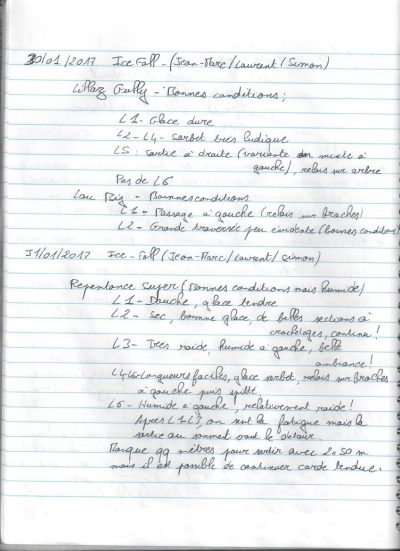 30/01/2017 Ice Fall - (Jean-Marc/Laurent/Simon)
Lillaz Gully - Bonnes conditions;
L1 - Glace dure
L2 - L4 - Sorbet très ludique
L5 : Sortie à droite (variante en mixte à
gauche), relais sur arbre
Pas de L6
Lau Bij - Bonnes conditions
L1 = Passage à gauche (relais sur broches)
L2 - Grande traversée peu évidente (bonnes conditions)
31/01/2017 Ice-Fall (Jean-Marc/Laurent/Simon)
Repentance Super (Bonnes conditions mais humide)
L1 - Douche, glace tendre
L2 - Sec, bonne glace, de belles sections à
crochetages, continu!
L3 - Très raide, humide à gauche, belle
ambiance!
L4-L5 - Longueurs faciles, glace sorbet, relais sur broches
à gauche puis spitté
L6 - Humide à gauche!, relativement raide!
Après L1-L3, on sent la fatigue mais la
sortie au sommet vaut le détour
Manque qq mètres pour sortir avec 2x50 m
mais il est possible de continuer corde tendue.